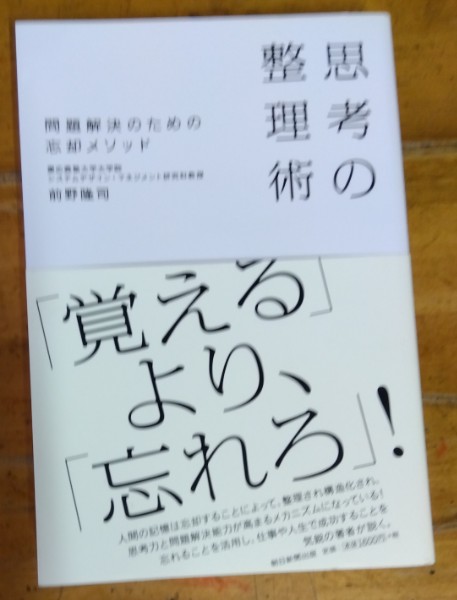 思考の
整理術
問題解決のための
忘却メソッド
慶応義塾大学大学院
システムデザイン・マネジメント研究科教授
前野隆司
「覚える」
より、
「忘れろ」!
人間の記憶は忘却することによって、整理され構造化され、
思考力と問題解決能力が高まるメカニズムになっている!
忘れることを活用し、仕事や人生で成功することを
気鋭の著者が説く。
朝日新聞出版 定価:本体1600円+税